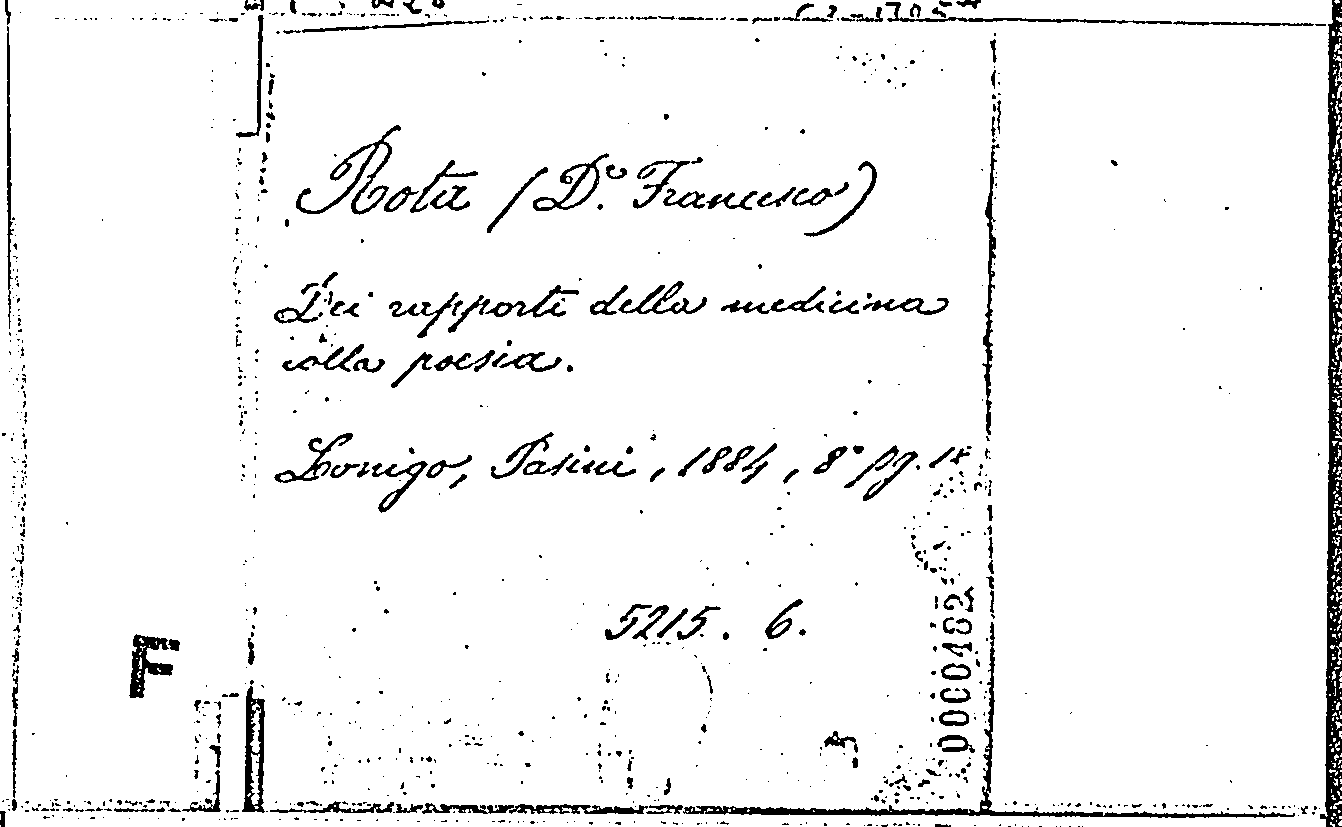 Rota (D.r Francesco)
Dei rapporti della medicina
colla poesia.
Lonigo, Pasini, 1884, 8° pg.
5215. 6.
F
0000482